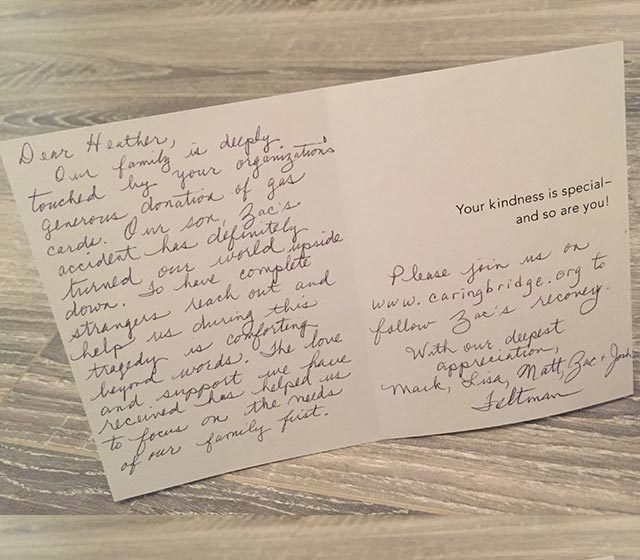 Dear Heather,
Our family is deeply
touched by your organization's
generous donation of gas
cards. Our son, Zac's
accident has definitely
turned our world upside
down. To have complete
strangers reach out and
help us during this
tragedy is comforting
beyond words. The love
and support we have
received has helped us
to focus on the needs
of our family first.
Your kindness is special–
and so are you!
Please join us on
www.caringbridge.org to
follow Zac's recovery.
With our deepest
appreciation,
Mark, Lisa, Matt, Zac + Josh
Feltman